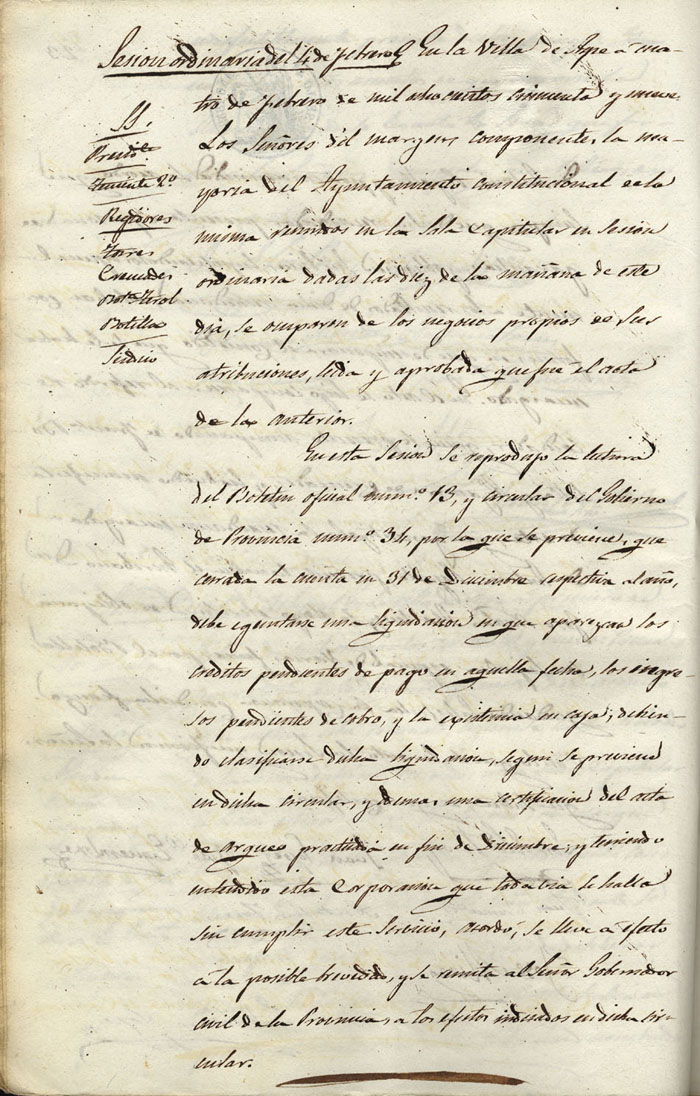 Sesion ordinaria del 4 de febrero En la Villa de Aspe á cua-
tro de febrero de mil ochocientos cincuenta y nueve
SS.
Los Señores del margen componentes la ma-
Presidte
yoria del Ayuntamiento constitucional de la
Teniente 2º
misma reunidos en la Sala Capitular en Sesion
Regidores
ordinaria dadas las diez de la mañana de este
Torres
Cremades
dia, se ocuparon de los negocios propios de sus
Botella
atribuciones, leida y aprobada que fue el acta
Sindico
de la anterior.
En esta Sesion se reprodujo la lectura
del Boletin oficial numº 13, y circular del Gobierno
de Provincia numº 34, por la que se previene, que
cerrada la cuenta en 31 de Diciembre respectiva al año,
debe egecutarse una liquidacion en que aparezcan los
creditos pendientes de pago en aquella fecha, los ingre-
sos pendientes de cobro, y la existencia en caja; debien-
do clasificarse dicha liquidacion, segun se previene
en dicha circular, y ademas una certificacion del acta
de arqueo practicada en fin de Diciembre; y teniendo
entendido esta Corporacion que todavia se halla
sin cumplir este Servicio, acordó, se lleve á efecto
á la posible brevedad, y se remita al Señor Gobernador
civil de la Provincia, a los efectos indicados en dicha cir-
cular.